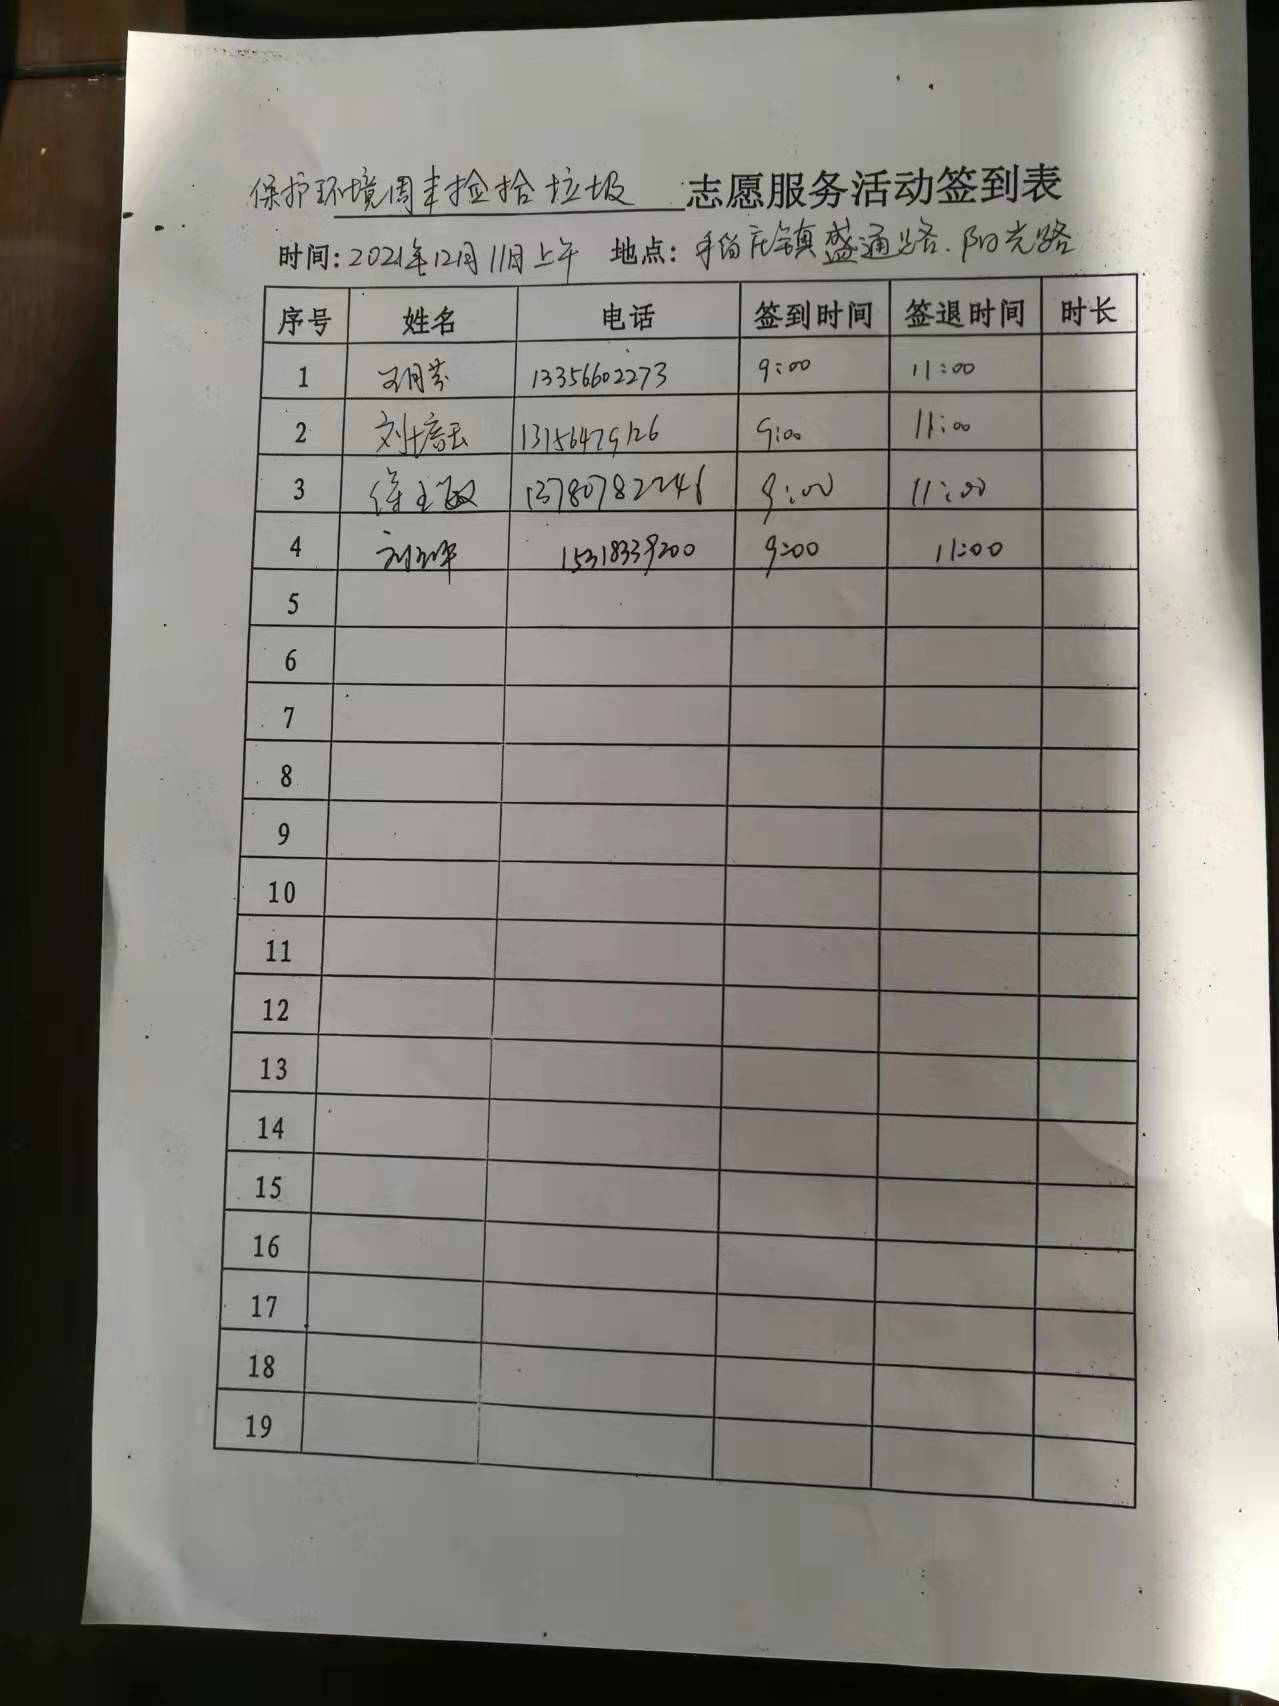 保护环境周末捡拾垃圾 志愿服务活动签到表
时间：2021年12月11日上午 地点：留庄镇盛通路、阳光路
序号 姓名 电话 签到时间 签退时间 时长
1 13356602273 9:00 11:00
2 刘培玉 13156479126 9:00 11:00
3 徐玉敏 13780782246 9:00 11:00
4 15318339200 9:00 11:00
5
6
7
8
9
10
11
12
13
14
15
16
17
18
19